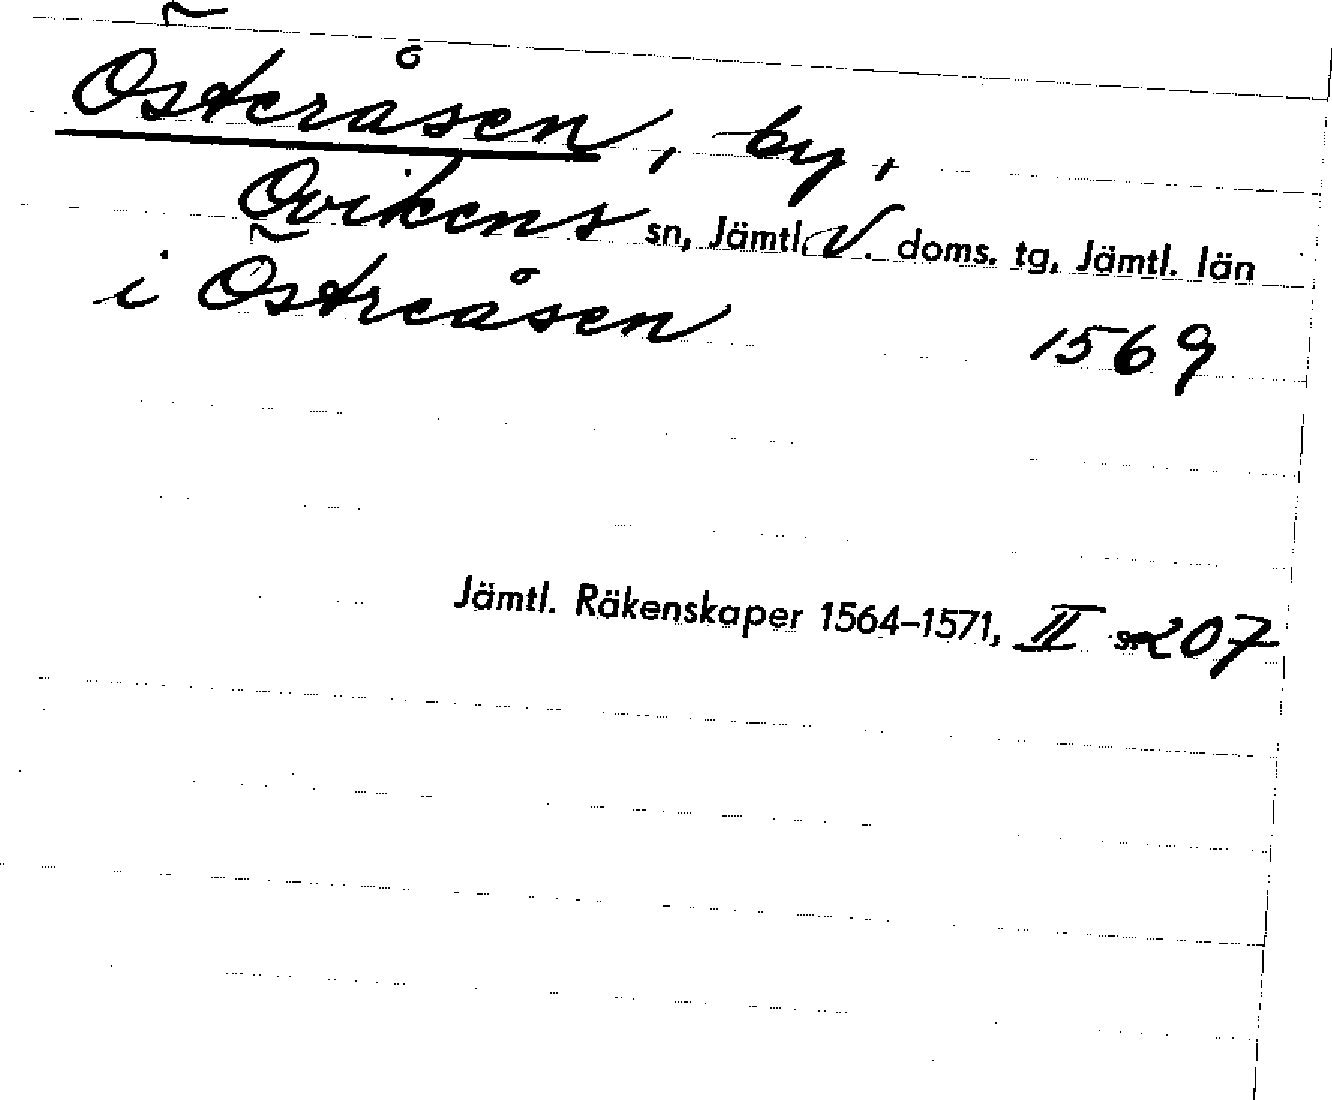 Österåsen, by,
Ovikens sn, Jämtl. V. doms. tg, Jämtl. län
i Östreåsen 1569
Jämtl. Räkenskaper 1564–1571, II s. 207